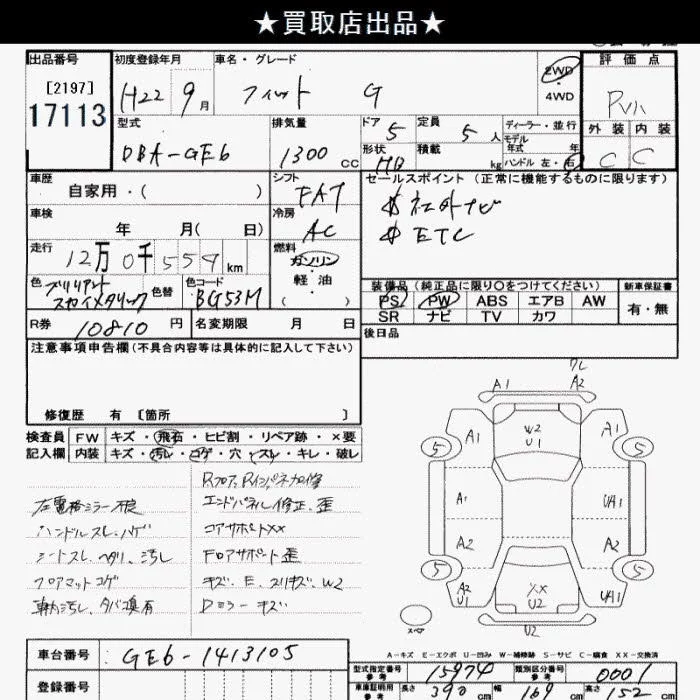 ★買取店出品★
出品番号 初度登録年月 車名・グレード 2WD 評価点
[2197] H22 9月 フィット G 4WD
17113
型式 排気量 ドア 5 定員 5人 ディーラー・並行 外装 内装
DBA-GE6 1300cc 形状 HB 積載 kg モデル年式 年 ハンドル 左・右 C C
車歴 シフト セールスポイント (正常に機能するものに限ります)
自家用・( ) FAT
車検 冷房 社外ナビ
年 月( 日) AC ETC
走行 燃料
12万0千559km ガソリン・軽油・( )
色 色替 色コード 装備品(純正品に限り○をつけてください) 新車保証書
ブリリアントスカイメタリック BG53M PS PW ABS エアB AW 有・無
SR ナビ TV カワ
R券 10810円 名変期限 月 日 後日品
注意事項申告欄(不具合内容等は具体的に記入して下さい)
修復歴 有 [箇所 ]
検査員 FW キズ・飛石・ヒビ割・リペア跡・×要
記入欄 内装 キズ・汚レ・コゲ・穴・スレ・キレ・破レ
左電格ミラー不良 エンドパネル修正、歪
ハンドルスレ、ハゲ コアサポートXX
シートスレ、ヘタリ、汚レ Fロアサポート歪
フロアマットコゲ キズ、E、スリキズ、W2
車内汚レ、タバコ臭有 Dミラーキズ
A1 A2
A1 W2 U1 A1
5 5
A1 UA1
A2 A2
5 5
A2 U1 XX U2 UA1
スペア U2
A-キズ E-エクボ U-凹み W-補修跡 S-サビ C-腐食 XX-交換済
車台番号 GE6-1413105
型式指定番号 参考 15974 類別区分番号 参考 0001
登録番号 車庫証明用 参考 長さ 390cm 幅 169cm 高さ 152cm